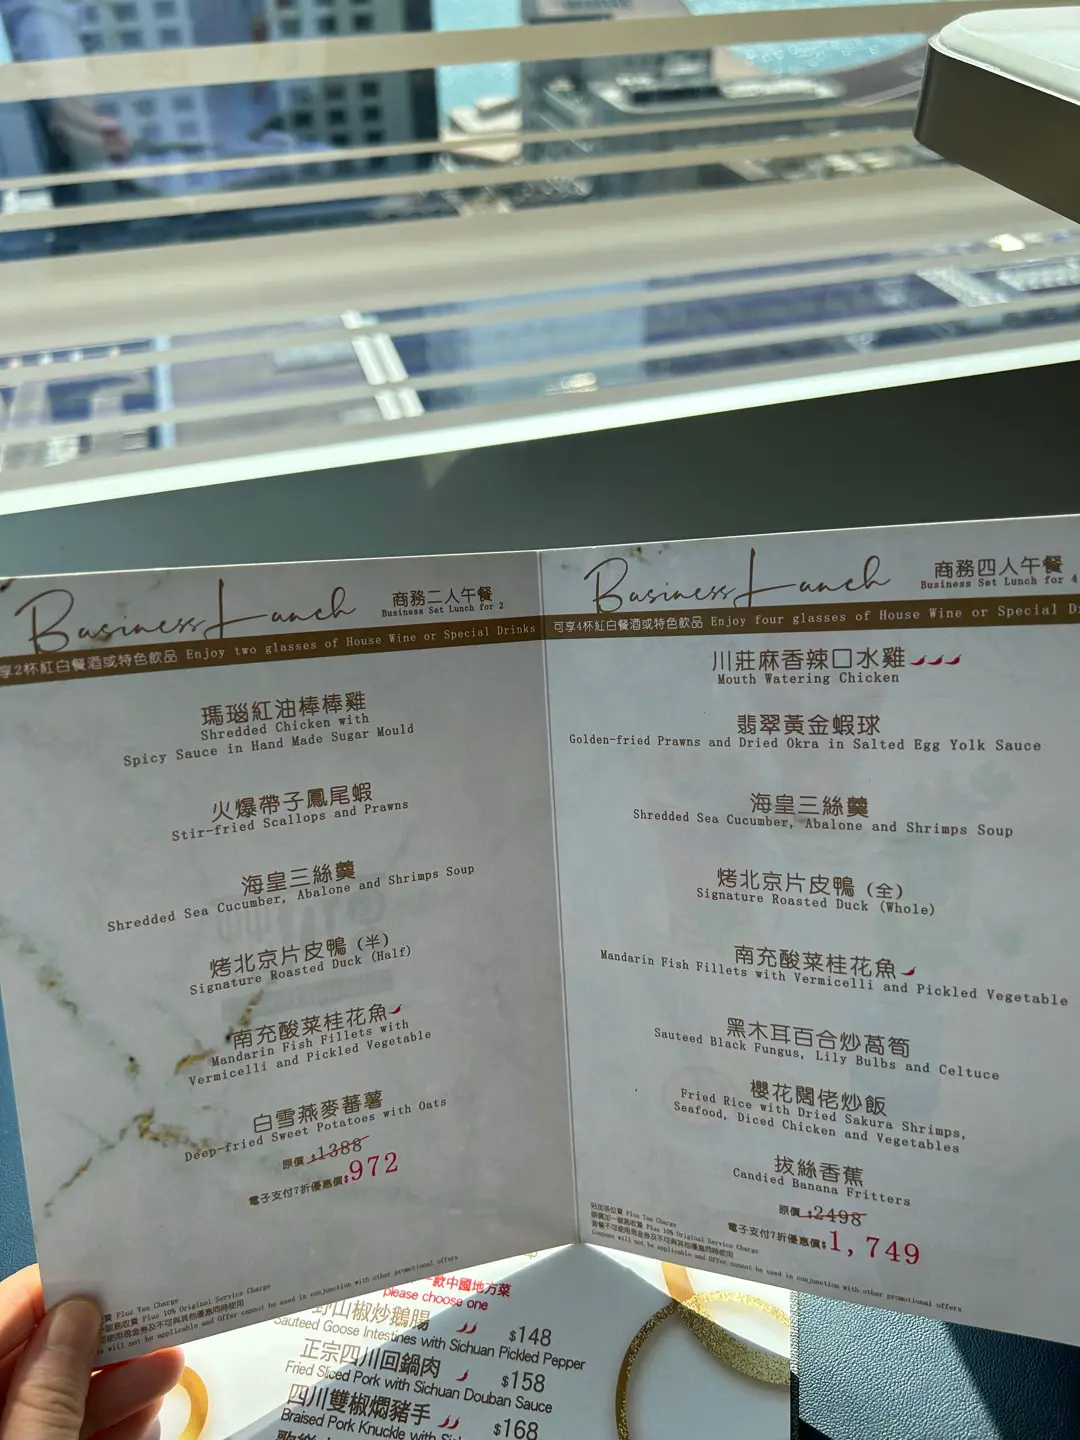 Business Lunch
商務二人午餐
Business Set Lunch for 2
享2杯紅白餐酒或特色飲品 Enjoy two glasses of House Wine or Special Drinks
瑪瑙紅油棒棒雞
Shredded Chicken with
Spicy Sauce in Hand Made Sugar Mould
火爆帶子鳳尾蝦
Stir-fried Scallops and Prawns
海皇三絲羹
Shredded Sea Cucumber, Abalone and Shrimps Soup
烤北京片皮鴨 (半)
Signature Roasted Duck (Half)
南充酸菜桂花魚
Mandarin Fish Fillets with
Vermicelli and Pickled Vegetable
白雪燕麥蕃薯
Deep-fried Sweet Potatoes with Oats
原價 $1388
電子支付7折優惠價$972
Plus Tea Charge
Plus 10% Original Service Charge
不可使用現金券及不可與其他優惠同時使用
will not be applicable and Offer cannot be used in conjunction with other promotional offers
Business Lunch
商務四人午餐
Business Set Lunch for 4
可享4杯紅白餐酒或特色飲品 Enjoy four glasses of House Wine or Special D
川莊麻香辣口水雞
Mouth Watering Chicken
翡翠黃金蝦球
Golden-fried Prawns and Dried Okra in Salted Egg Yolk Sauce
海皇三絲羹
Shredded Sea Cucumber, Abalone and Shrimps Soup
烤北京片皮鴨 (全)
Signature Roasted Duck (Whole)
南充酸菜桂花魚
Mandarin Fish Fillets with Vermicelli and Pickled Vegetable
黑木耳百合炒萵筍
Sauteed Black Fungus, Lily Bulbs and Celtuce
櫻花闊佬炒飯
Fried Rice with Dried Sakura Shrimps,
Seafood, Diced Chicken and Vegetables
拔絲香蕉
Candied Banana Fritters
原價 $2498
電子支付7折優惠價$1,749
另加茶位費 Plus Tea Charge
原價加一服務收費 Plus 10% Original Service Charge
套餐不可使用現金券及不可與其他優惠同時使用
Coupons will not be applicable and Offer cannot be used in conjunction with other promotional offers
一款中國地方菜
please choose one
野山椒炒鵝腸 $148
Sauteed Goose Intestines with Sichuan Pickled Pepper
正宗四川回鍋肉 $158
Fried Sliced Pork with Sichuan Douban Sauce
四川雙椒燜豬手 $168
Braised Pork Knuckle with